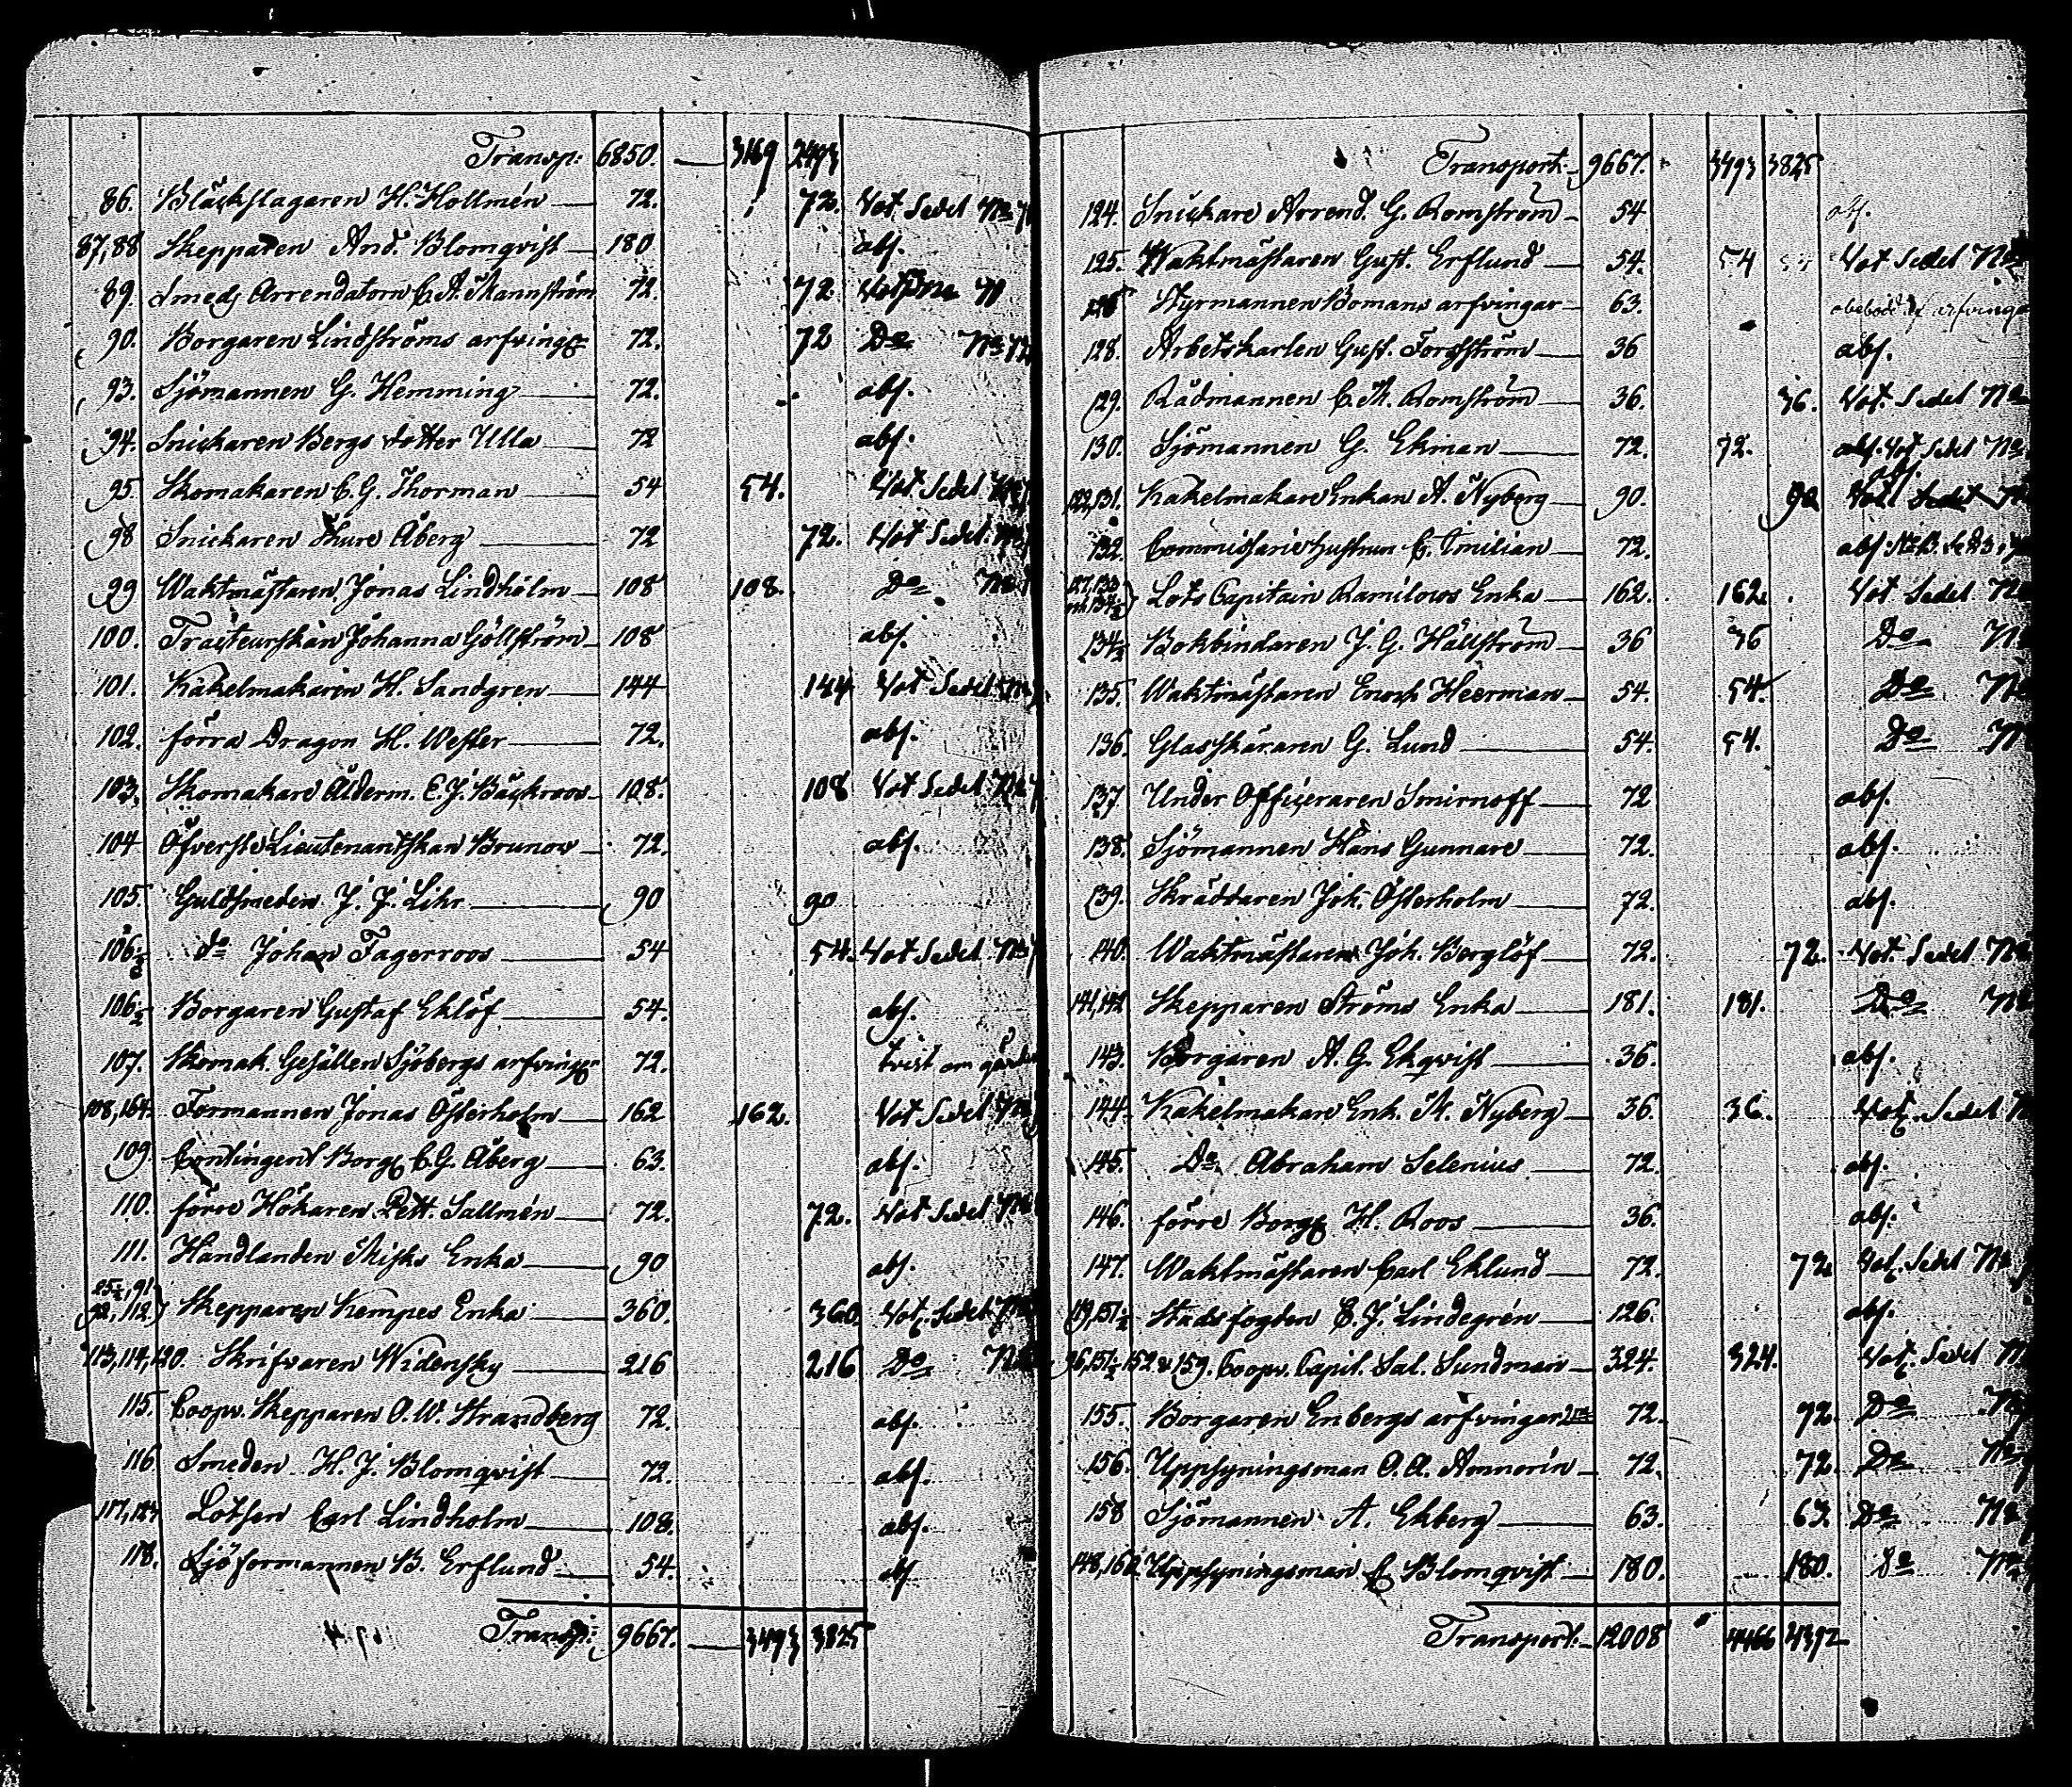 Transp: 6850. — 3169 2493
86. Bläckslagaren H. Hollmén — 72. 72. Vot. Sedel No
87,88 Skepparen And. Blomqvist — 180 abs.
89. Smeds Arrendatorn C. A. Mannström 72. 72
90. Borgaren Lindströms arfving. 72. 72 Do No 72
93. Sjömannen G. Hemming — 72. abs.
94. Snickaren Bergs dotter Ulla — 72 abs.
95 Skomakaren C. G. Thorman — 54 54. Vot Sedel
98 Snickaren Thure Åberg — 72 72. Vot Sedel
99 Waktmästaren Jonas Lindholm — 108 108. Do No
100. Traiteurskan Johanna Göllström — 108 abs.
101. Kakelmakaren H. Sandgren — 144 144 Vot Sedel
102. förra Dragon H. Wester — 72. abs.
103. Skomakare Ålderm. E. J. Bäckroos — 108. 108 Vot Sedel No
104 Öfverste Lieutenantskan Brunow — 72. abs.
105 Guldsmeden J. J. Lihr — 90 90
106 1/2 do Johan Fagerroos — 54 54. Vot Sedel No
106 1/2 Borgaren Gustaf Eklöf — 54. abs.
107. Skomak. Gesällen Sjöbergs arfving. 72. tvist om
108,164. Formannen Jonas Österholm — 162 162. Vot Sedel No
109 Contingent Borg. C. G. Åberg — 63. abs.
110. förre Hökaren Pett. Sallmén — 72. 72. Vot Sedel No
111. Handlanden Misks Enka — 90 abs.
85 1/2, 91
92, 112. Skepparen Kempes Enka — 360. 360. Vot. Sedel No
113,114,120. Skrifvaren Widensky — 216 216 Do No
115. Coopv. Skepparen O. W. Strandberg 72. abs.
116 Smeden H. J. Blomqvist — 72. abs.
117,123 Lotsen Carl Lindholm — 108. abs.
118. Sjöformannen B. Erflund — 54. abs
Transp: 9667. — 3493 3825
Transport: 9667. 3493 3825
124. Snickare Arrend. G. Romström — 54 abs.
125. Waktmästaren Gust. Erflund — 54. 54 Vot Sedel No
126 Styrmannen Bomans arfvingar — 63.
128. Arbetskarlen Gust. Forsström — 36 abs.
129. Rådmannen C. A. Romström — 36. 36. Vot. Sedel No
130. Sjömannen G. Ekman — 72. 72. abs. Vot Sedel No
122,131. Kakelmakare Enkan A. Nyberg — 90. 90 abs. Vot Sedel No
132. Commissarie hustrun C. Emilian — 72. abs.
127,133 Lots Capitain Ramilows Enka — 162. 162. Vot Sedel No
134 1/2 Bokbindaren J. G. Hällström — 36 36 Do No
135. Waktmästaren Enoch Heerman — 54. 54. Do No
136. Glasskäraren G. Lund — 54. 54. Do No
137. Under Officeraren Smirnoff — 72 abs.
138. Sjömannen Hans Gunnare — 72. abs.
139. Skräddaren Joh. Österholm — 72. abs.
140. Waktmästaren Joh. Berglöf — 72. 72. Vot. Sedel No
141,142 Skepparen Ströms Enka — 181. 181. Do No
143. Borgaren A. G. Ekqvist — 36. abs.
144. Kakelmakare Enk. A. Nyberg — 36. 36. Vot. Sedel No
145. Do Abraham Selenius — 72. abs.
146. förre Borg. H. Roos — 36. abs.
147. Waktmästaren Carl Eklund — 72. 72. Vot. Sedel No
119,151 1/2 Stadsfogden C. J. Lindegrén — 126. abs.
96,151 1/2 152 & 159. Coopv. Capit. Sal. Sundman — 324. 324. Vot. Sedel No
155. Borgaren Enbergs arfvingar — 72. 92. Do No
156. Uppsyningsman O. A. Amnorin — 72. 72. Do No
158 Sjömannen A. Ekberg — 63. 63. Do No
148,160. Uppsyningsman C. Blomqvist — 180. 180. Do No
Transport: — 12008 4466 4392